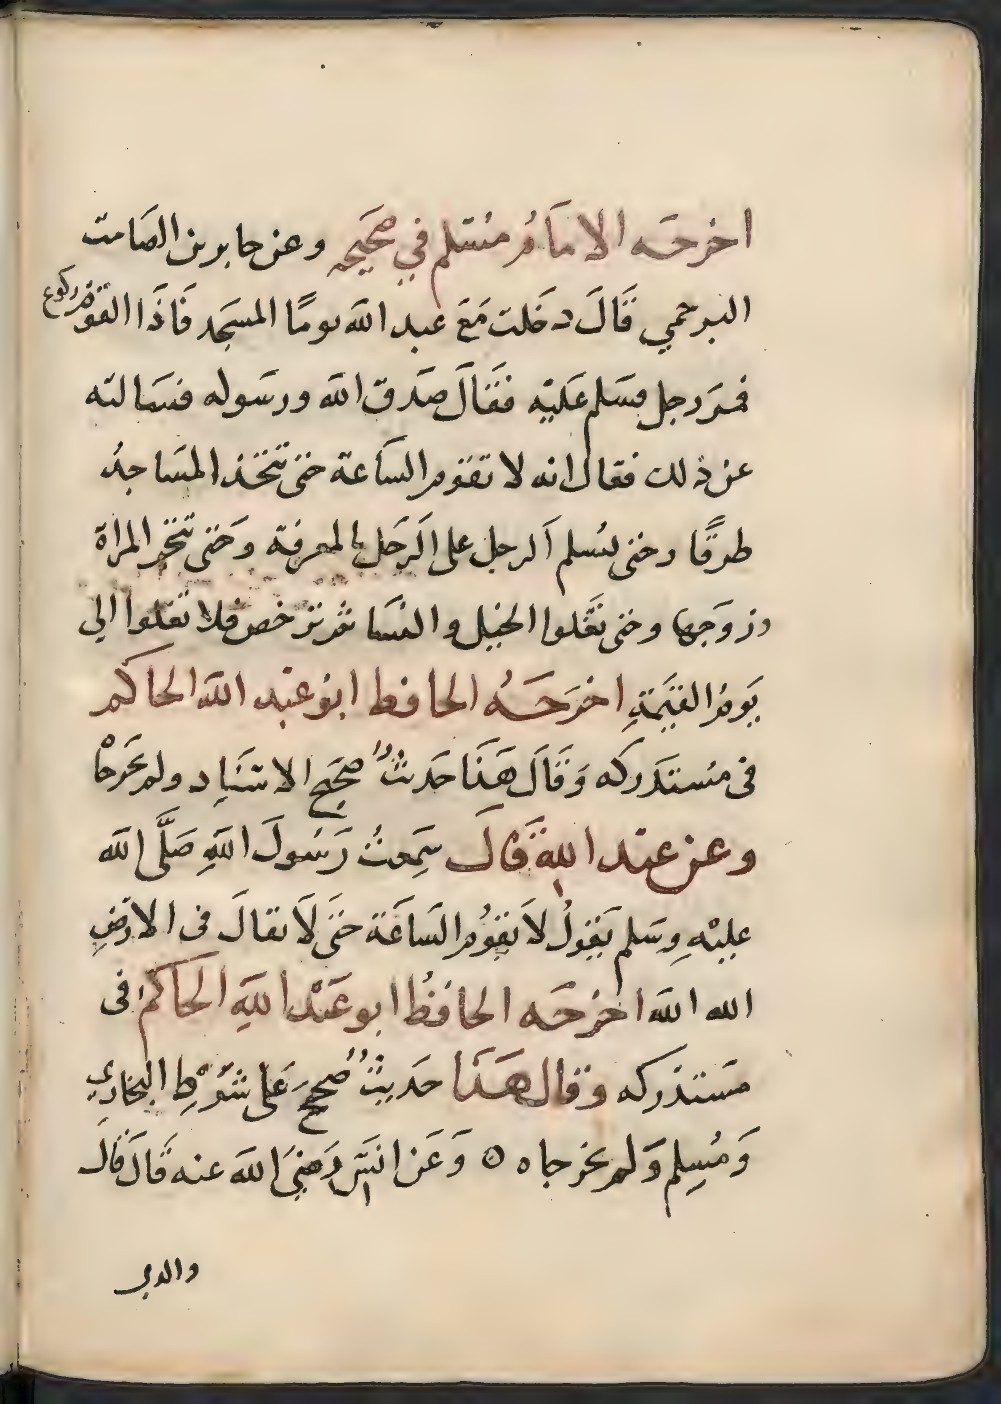 اخرجه الامام مسلم في صحيحه وعن جابر بن الصامت
البرجمي قال دخلت مع عبد الله يوما المسجد فاذا القوم ركوع
فمر رجل فسلم عليه فقال صدق الله ورسوله فسالته
عن ذلك فقال انه لا تقوم الساعة حتى تتخذ المساجد
طرقا وحتى يسلم الرجل على الرجل بالمعرفة وحتى تتجر المراة
وزوجها وحتى تغلوا الخيل والنسا ثم ترخص فلا تغلوا الي
يوم القيمة اخرجه الحافظ ابو عبد الله الحاكم
في مستدركه وقال هذا حديث صحيح الاسناد ولم يخرجا
وعن عبد الله قال سمعت رسول الله صلى الله
عليه وسلم يقول لا تقوم الساعة حتى لا يقال في الارض
الله الله اخرجه الحافظ ابو عبد الله الحاكم في
مستدركه وقال هذا حديث صحيح على شرط البخاري
ومسلم ولم يخرجاه ٥ وعن انس رضي الله عنه قال قال
والدي